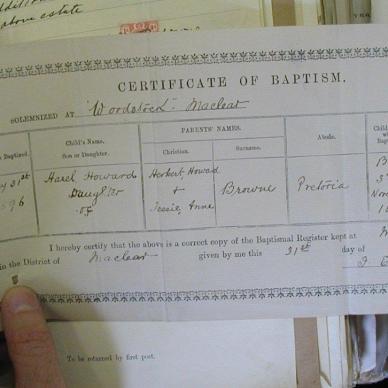 above estate
CERTIFICATE OF BAPTISM.
SOLEMNIZED AT "Woodstock" Maclear
Baptized.
Child's Name.
Son or Daughter.
PARENTS' NAMES.
Christian.
Surname.
Abode.
31st
Hazel Howard
Daughter
of
Herbert Howard
+
Jessie, Anne
Browne
Pretoria
I hereby certify that the above is a correct copy of the Baptismal Register kept at
in the District of Maclear given by me this 31st day of
To be returned by first post.